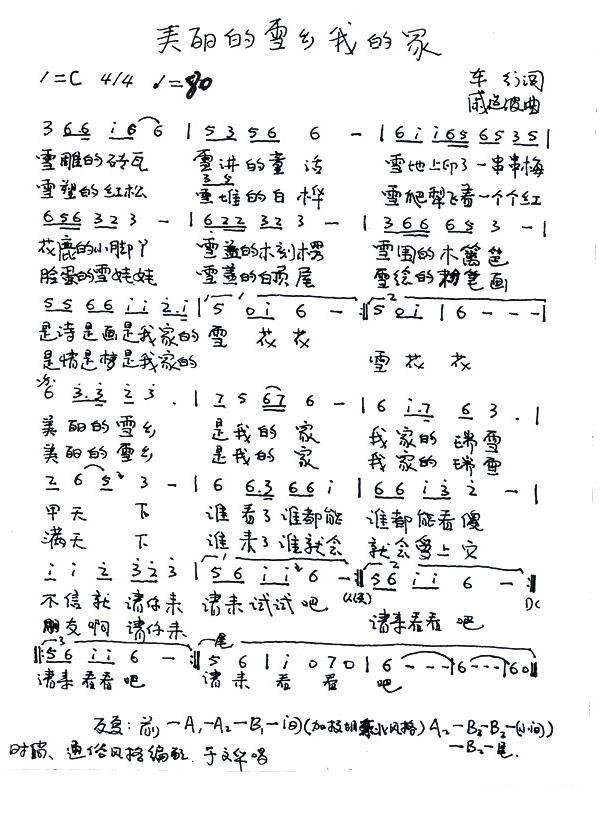 美丽的雪乡我的家
1=C 4/4 ♩=80
车行词
戚建波曲
3 6 6 i 6 6 | 5 3 5 6 6 - | 6 i i 6 5 6 5 3 5 |
雪雕的砖瓦 雪讲的童话 雪地上印了一串串梅
雪塑的红松 雪堆的白桦 雪爬犁飞着一个个红
6 5 6 3 2 3 - | 6 2 2 3 2 3 - | 3 6 6 6 5 3 - |
花鹿的小脚丫 雪盖的木刻楞 雪围的木篱笆
脸蛋的雪娃娃 雪盖的白顶屋 雪绘的粉笔画
5 5 6 6 i i 2 . i | 5 0 i 6 - :‖ 5 0 i | 6 - - - |
是诗是画是我家的 雪 花 花
是情是梦是我家的 雪 花 花
6 3 . 3 2 3 . | 7 5 6 7 6 - | 6 i . 7 6 3 . |
美丽的雪乡 是我的家 我家的瑞雪
美丽的雪乡 是我的家 我家的瑞雪
2 6 5 3 - | 6 6 . 3 6 6 i | 6 6 i 3 2 - |
甲天下 谁看了谁都能 谁都能看傻
满天下 谁来了谁就会 就会爱上它
i i 2 3 2 3 | 5 6 i i 6 - :‖ 5 6 i i 6 - :‖
不信就请你来 请来试试吧
朋友啊请你来 请来看看吧
DC
‖: 5 6 i i 6 - :‖ 5 6 | i i 0 7 0 | 6 - - - | 6 - - 6 0 ‖
尾
请来看看吧 请来看看吧
反复：前—A₁—A₂—B₁—间(加投明快东北风格)A₂—B₂—B₂—(小间)
—B₂—尾.
时尚、通俗风格编配. 于文华唱